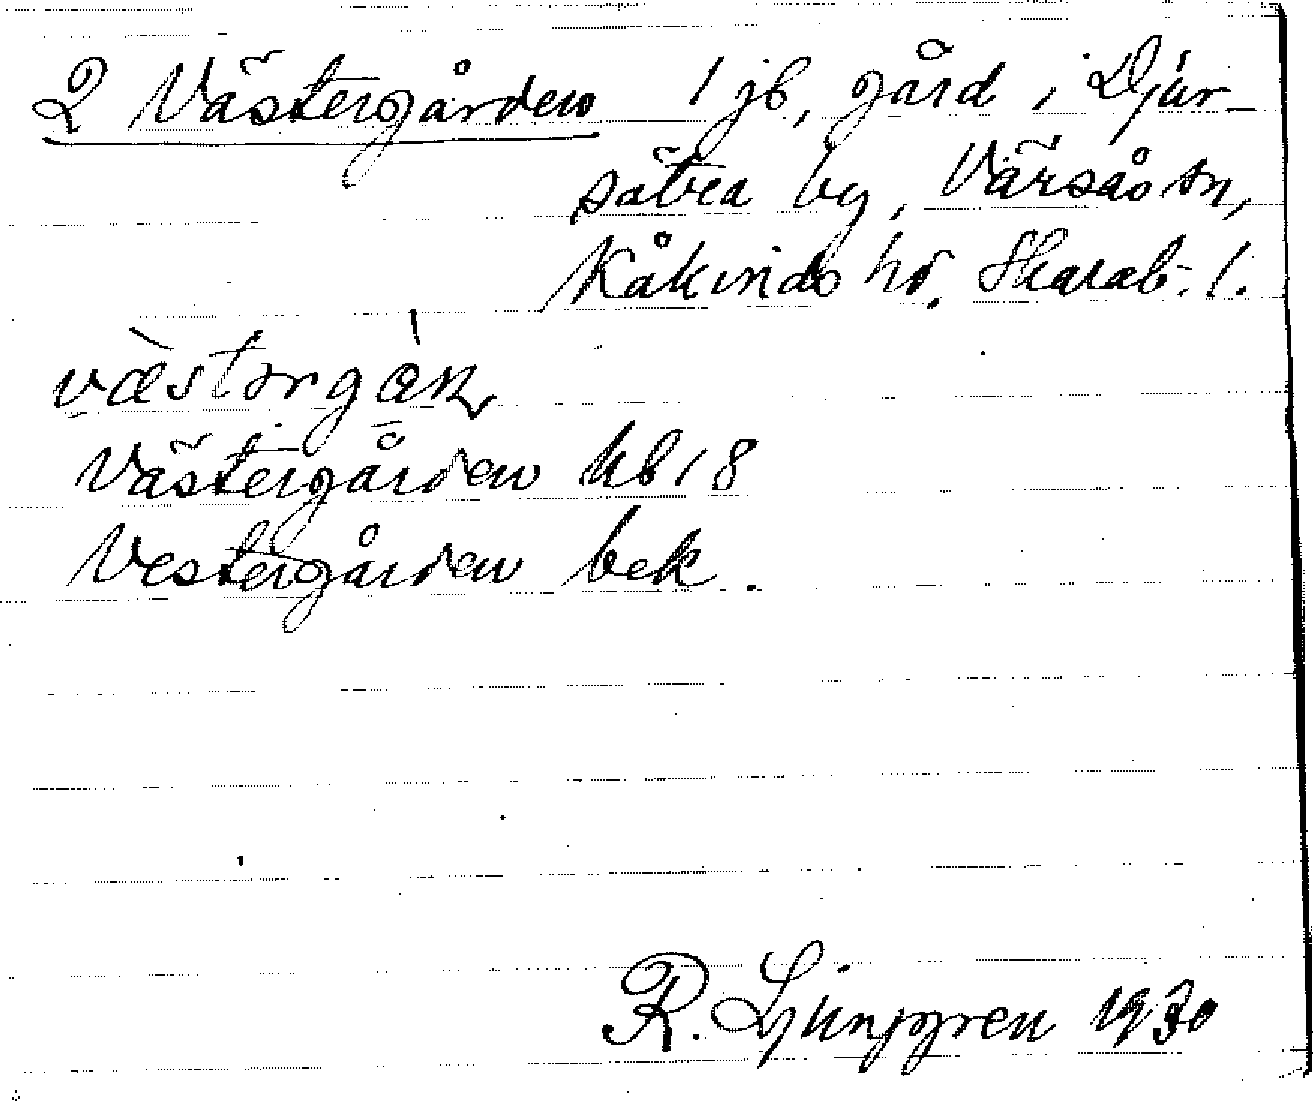 2 Västergården 1 jb, gård i Djur-
sätra by, Värsås sn,
Kåkinds hd. Skarab. l.
Västergården hb 18
Vestergården bek.
R. Ljunggren 1930